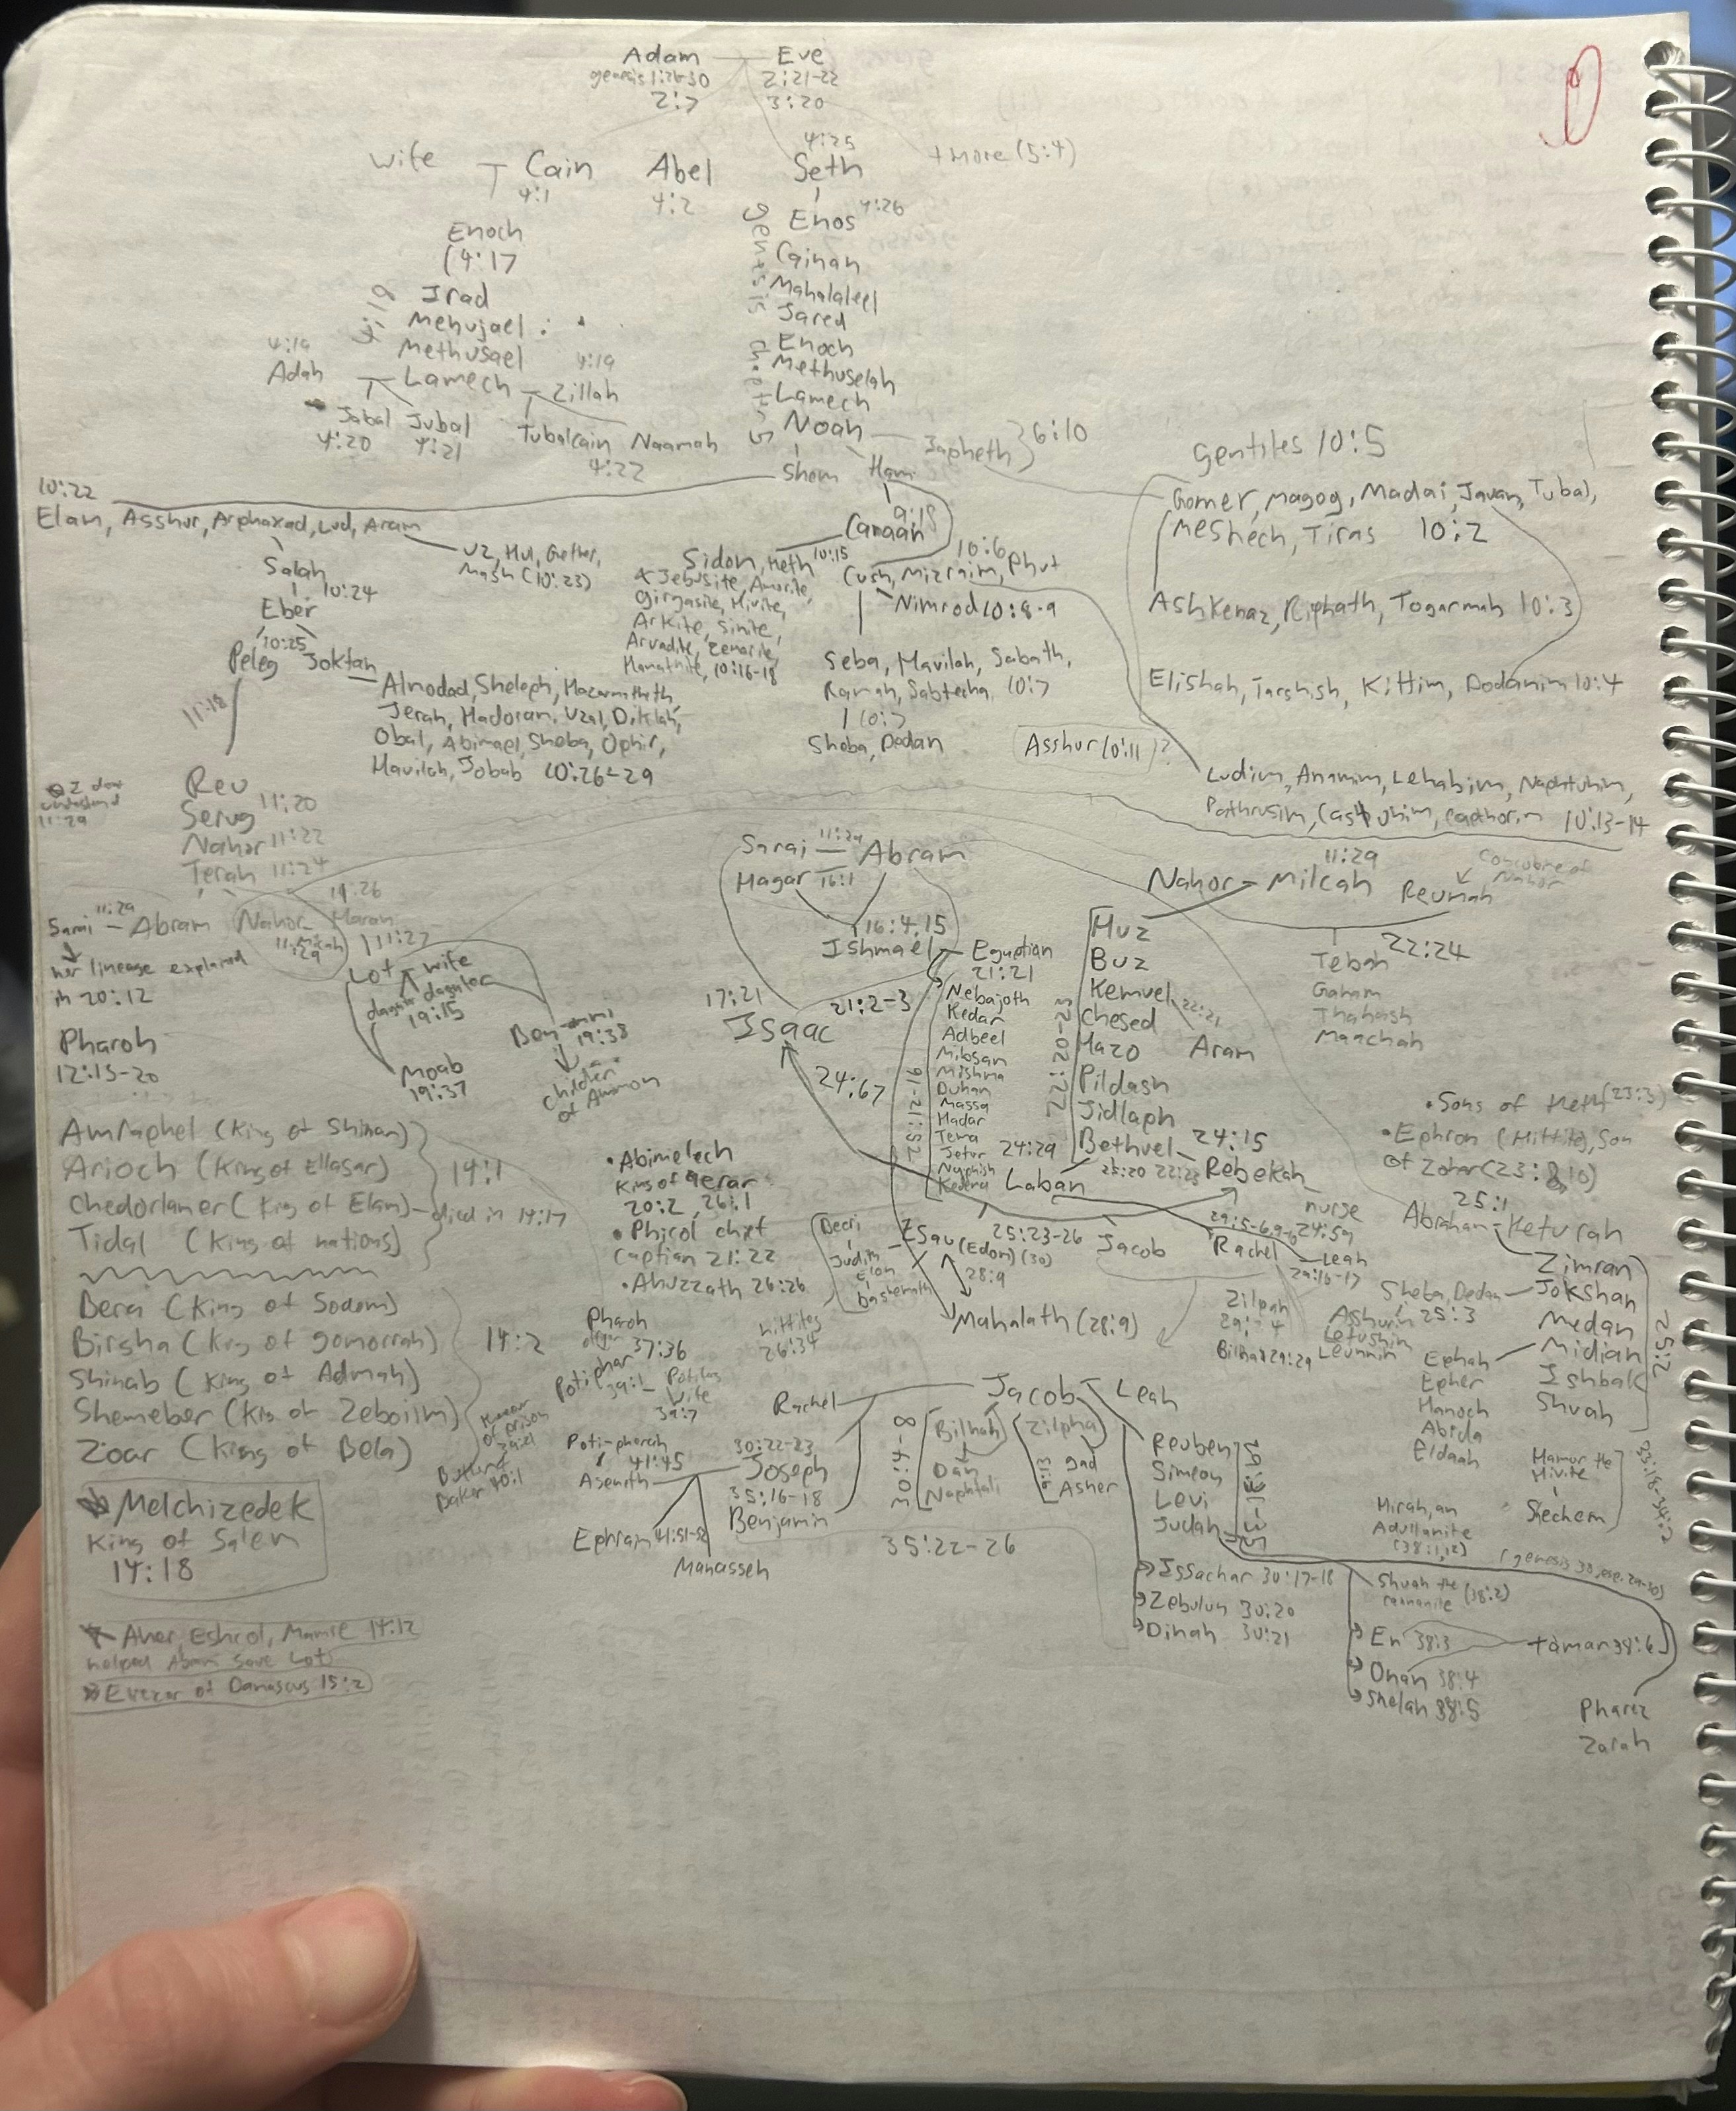 Adam Eve
genesis 1:26-30 2:21-22
2:7 3:20
4:25
wife Cain Abel Seth + more (5:4)
4:1 4:2
Enos 4:26
Enoch
(4:17
Cainan
Irad
Mahalaleel
Mehujael
Jared
Methusael
Enoch
4:19 4:19
Methuselah
Adah Lamech Zillah
Lamech
Jabal Jubal Tubalcain Naamah
4:20 4:21 4:22
Genesis
Noah Japheth } 6:10
Shem Ham
gentiles 10:5
Gomer, Magog, Madai, Javan, Tubal,
Meshech, Tiras 10:2
Ashkenaz, Riphath, Togarmah 10:3
Elishah, Tarshish, Kittim, Dodanim 10:4
10:22
Elam, Asshur, Arphaxad, Lud, Aram
Uz, Hul, Gether,
Mash (10:23)
Salah
10:24
Eber
10:25
Peleg Joktan
11:18
Almodad, Sheleph, Hazarmaveth,
Jerah, Hadoram, Uzal, Diklah,
Obal, Abimael, Sheba, Ophir,
Havilah, Jobab 10:26-29
9:18
Canaan
Sidon, Heth 10:15
& Jebusite, Amorite,
Girgasite, Hivite,
Arkite, Sinite,
Arvadite, Zemarite,
Hamathite, 10:16-18
10:6
Cush, Mizraim, Phut
Nimrod 10:8-9
Seba, Havilah, Sabath,
Ramah, Sabtecha 10:7
10:7
Sheba, Dedan
Asshur (10:11)?
Ludim, Anamim, Lehabim, Naphtuhim,
Pathrusim, Casluhim, Capthorim 10:13-14
I dont
understand
11:29
Reu
Serug 11:20
Nahor 11:22
Terah 11:24
11:26
Sarai 11:29 Abram Nahor Haran
11:29 11:27
her lineage explained
in 20:12
Lot wife
19:15
Moab
19:37
Ben-ammi
19:38
children
of Ammon
Pharoh
12:15-20
Sarai 11:29 Abram
Hagar 16:1
16:4,15
Ishmael Egyptian
21:21
17:21 21:2-3
Isaac
24:67
Nebajoth
Kedar
Adbeel
Mibsam
Mishma
Duhan
Massa
Hadar
Tema
Jetur
Naphish
Kedema
11:29
Nahor - Milcah Reumah
Concubine of
Nahor
22:24
Tebah
Gaham
Thahash
Maachah
Huz
Buz
Kemuel 22:21
Chesed
Hazo Aram
Pildash
Jidlaph
Bethuel 24:15
22:20-23
24:29 25:20 22:23
Laban Rebekah
nurse
24:59
• Sons of Heth (23:3)
• Ephron (Hittite), Son
of Zohar (23:8,10)
25:1
Abraham - Keturah
Zimran
Jokshan
Medan
Midian
Ishbak
Shuah
25:2
Sheba, Dedan
25:3
Asshurim
Letushim
Leummim
Ephah
Epher
Hanoch
Abida
Eldaah
Amraphel (King of Shinar)
Arioch (King of Ellasar)
14:1
Chedorlamer (King of Elam) - died in 14:17
Tidal (King of nations)
Bera (King of Sodom)
Birsha (King of gomorrah)
14:2
Shinab (King of Admah)
Shemeber (King of Zeboiim)
Zoar (King of Bela)
Melchizedek
King of Salem
14:18
Aner, Eshcol, Mamre
helped Abram save Lot
Eliezer of Damascus 15:2
• Abimelech
King of gerar
20:2, 26:1
• Phicol chief
captian 21:22
• Ahuzzath 26:26
Beeri
Judith
Elon
Bashemath
hittites
26:34
Esau (Edom) (30) 25:23-26 Jacob
28:9
Mahalath (28:9)
Rachel Leah
29:16-17
Zilpah
Bilhah 29:29
Pharoh
37:36
Potiphar
39:1
Wife
39:7
Keeper
of prison
39:21
Baker
Poti-pherah
41:45
Asenath
Rachel Jacob Leah
30:22-23
Joseph
35:16-18
Benjamin
Ephraim 41:51-52
Manasseh
30:4-8
Bilhah
Dan
Naphtali
Zilpha
gad
Asher
35:22-26
Reuben
Simeon
Levi
Judah
Issachar 30:17-18
Zebulun 30:20
Dinah 30:21
Hamor the
Hivite
Shechem
Hirah, an
Adullamite
(38:1,12)
Shuah the (38:2)
Er 38:3 Tamar 38:6
Onan 38:4
Shelah 38:5
Pharez
Zarah